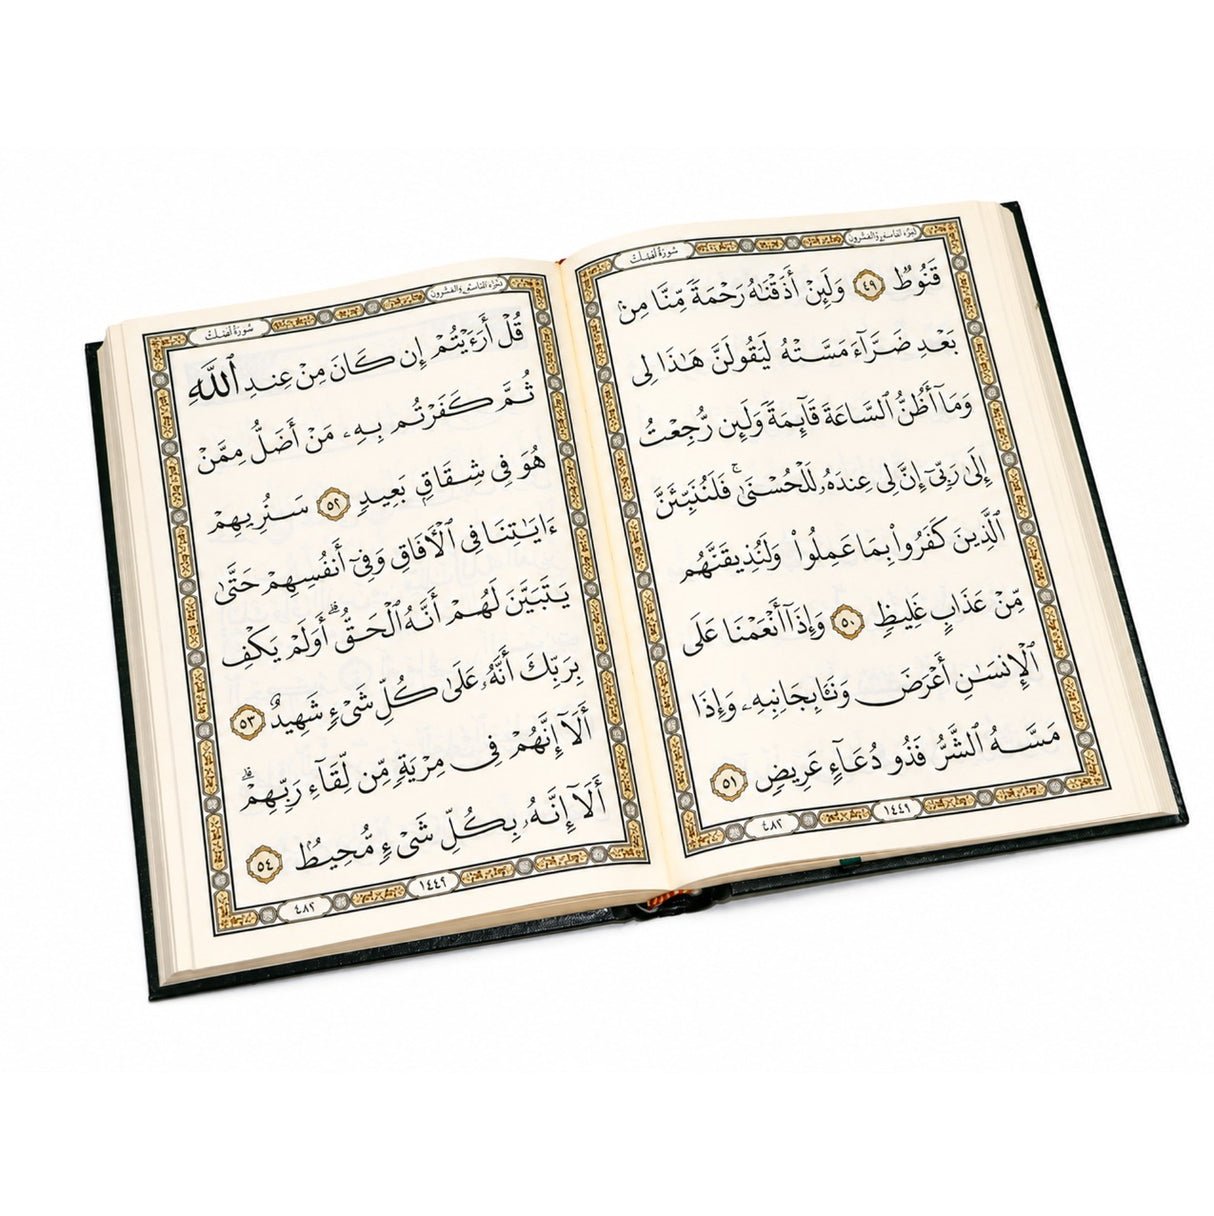 سُورَةُ فُصِّلَتْ
قَنُوطٌ ٤٩ وَلَئِنْ أَذَقْنَٰهُ رَحْمَةً مِّنَّا مِنۢ
بَعْدِ ضَرَّآءَ مَسَّتْهُ لَيَقُولَنَّ هَٰذَا لِى
وَمَآ أَظُنُّ ٱلسَّاعَةَ قَآئِمَةً وَلَئِن رُّجِعْتُ
إِلَىٰ رَبِّىٓ إِنَّ لِى عِندَهُۥ لَلْحُسْنَىٰ ۚ فَلَنُنَبِّئَنَّ
ٱلَّذِينَ كَفَرُوا۟ بِمَا عَمِلُوا۟ وَلَنُذِيقَنَّهُم
مِّنْ عَذَابٍ غَلِيظٍ ٥٠ وَإِذَآ أَنْعَمْنَا عَلَى
ٱلْإِنسَٰنِ أَعْرَضَ وَنَـَٔا بِجَانِبِهِۦ وَإِذَا
مَسَّهُ ٱلشَّرُّ فَذُو دُعَآءٍ عَرِيضٍ ٥١
١٤٤٩ ٤٨٢
سُورَةُ فُصِّلَتْ
قُلْ أَرَءَيْتُمْ إِن كَانَ مِنْ عِندِ ٱللَّهِ
ثُمَّ كَفَرْتُم بِهِۦ مَنْ أَضَلُّ مِمَّنْ
هُوَ فِى شِقَاقٍۭ بَعِيدٍ ٥٢ سَنُرِيهِمْ
ءَايَٰتِنَا فِى ٱلْـَٔافَاقِ وَفِىٓ أَنفُسِهِمْ حَتَّىٰ
يَتَبَيَّنَ لَهُمْ أَنَّهُ ٱلْحَقُّ ۗ أَوَلَمْ يَكْفِ
بِرَبِّكَ أَنَّهُۥ عَلَىٰ كُلِّ شَىْءٍ شَهِيدٌ ٥٣
أَلَآ إِنَّهُمْ فِى مِرْيَةٍ مِّن لِّقَآءِ رَبِّهِمْ ۗ
أَلَآ إِنَّهُۥ بِكُلِّ شَىْءٍ مُّحِيطٌۢ ٥٤
١٤٤٩ ٤٨٢